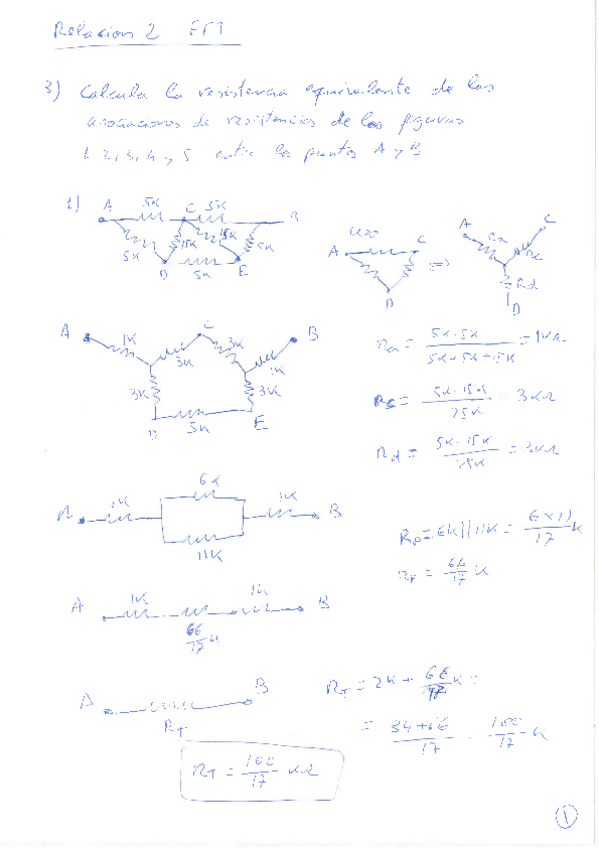 Relacion 2 FFT
3) Calcula la resistencia equivalente de las
asociaciones de resistencias de las figuras
1, 2, 3, 4 y 5 entre los puntos A y B
1)
A 5K C 5K B
5K 15K 15K 5K
D 5K E
A C
D
=>
A C
Ra Rc
Rd
D
A 1K 3K C 3K 1K B
3K 3K
D 5K E
Ra = 5K·5K / 5K+5K+15K = 1KΩ
Rc = 5K·15K / 25K = 3KΩ
Rd = 5K·15K / 25K = 3KΩ
6K
A 1K 1K B
11K
Rp = 6K||11K = 6x11 / 17 K
Rp = 66/17 K
A 1K 1K B
66/17 K
A B
RT
RT = 2K + 66/17 K =
= 34+66 / 17 = 100/17 K
RT = 100/17 KΩ
1